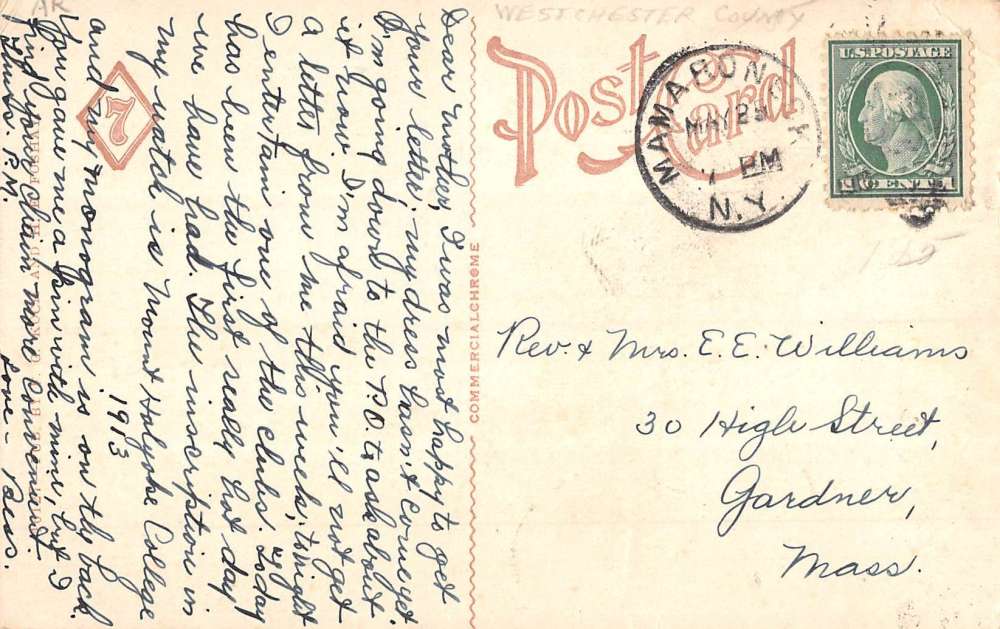 AR
WESTCHESTER COUNTY
Post Card
MAMARONECK
MAY 29
7 PM
N.Y.
U.S. POSTAGE
1 CENT 1
125
Rev. & Mrs. E. E. Williams
30 High Street,
Gardner,
Mass.
COMMERCIALCHROME
7
Dear Mother, I was most happy to get
your letter; my dress hasn't come yet.
I'm going down to the P.O. to ask about
it now. I'm afraid you'll not get
a letter from me this week; tonight
I entertain one of the clubs. Today
has been the first really hot day
we have had. The inscription in
my watch is Mount Holyoke College
1913
and my monogram is on the back.
You gave me a pin with mine, but I
find your chain more convenient
Love - Bess.